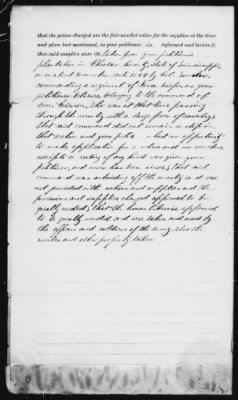 that the prices charged are the fair market value for the supplies at the time
and place last mentioned, as your petitioner is informed and believes;
that said supplies were taken from your petitioners
plantation in County State of Mississippi
on or about December 1864 by Col.
commanding a regiment of as your
petitioner believes, belonging to the command of
Gen. Grierson, who was at that time passing
through the county with a large force of cavalry
that said command did not remain or stop in
that section and your petitioner had no opportunity
to make application for a voucher and no voucher
receipt or writing of any kind was given your
petitioner, nor since; that said
command was subsisting off the country and was
not provided with rations and supplies and the
provisions and supplies charged appeared to be
greatly needed; that the horses likewise appeared
to be greatly needed and were taken and used by
the officers and soldiers of the army, also the
mules and other property taken